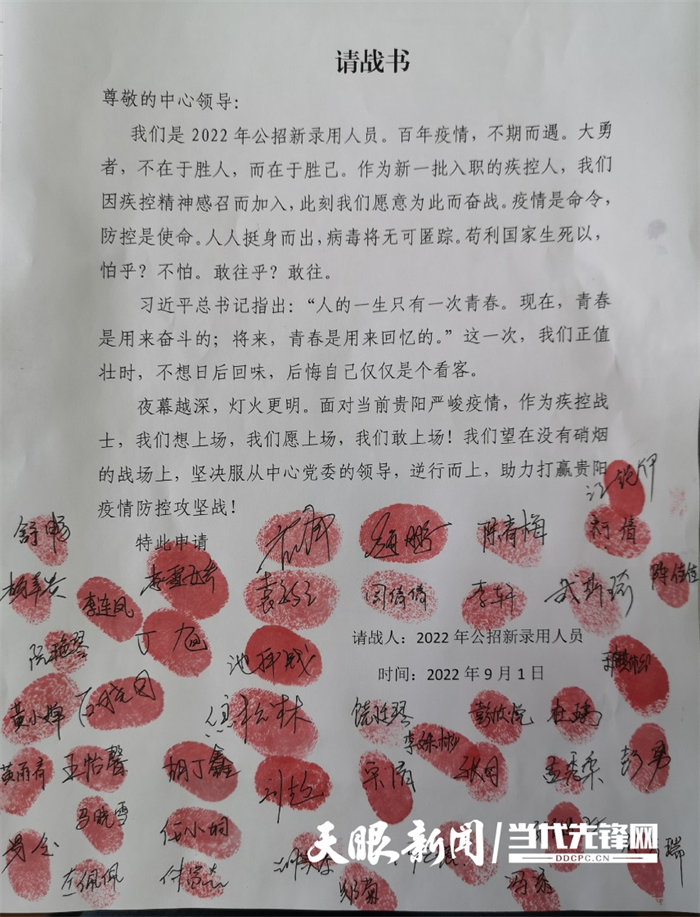 请战书
尊敬的中心领导:
我们是 2022 年公招新录用人员。百年疫情，不期而遇。大勇
者，不在于胜人，而在于胜己。作为新一批入职的疾控人，我们
因疾控精神感召而加入，此刻我们愿意为此而奋战。疫情是命令，
防控是使命。人人挺身而出，病毒将无可匿踪。苟利国家生死以，
怕乎？不怕。敢往乎？敢往。
习近平总书记指出：“人的一生只有一次青春。现在，青春
是用来奋斗的；将来，青春是用来回忆的。”这一次，我们正值
壮时，不想日后回味，后悔自己仅仅是个看客。
夜幕越深，灯火更明。面对当前贵阳严峻疫情，作为疾控战
士，我们想上场，我们愿上场，我们敢上场！我们望在没有硝烟
的战场上，坚决服从中心党委的领导，逆行而上，助力打赢贵阳
疫情防控攻坚战！
舒畅
陈春梅
柯倩
特此申请
李连凤
闫倩倩
李轩
武斯瑜
阮艳琴
丁旭
请战人：2022 年公招新录用人员
时间：2022 年 9 月 1 日
黄小婵
饶廷琴
彭欣悦
黄雨奇
王怡馨
胡丁鑫
刘超
孟秀荣
彭勇
马晓雪
任小桐
左佩佩
郑菊
瑞
天眼新闻
当代先锋网
DDCPC.CN